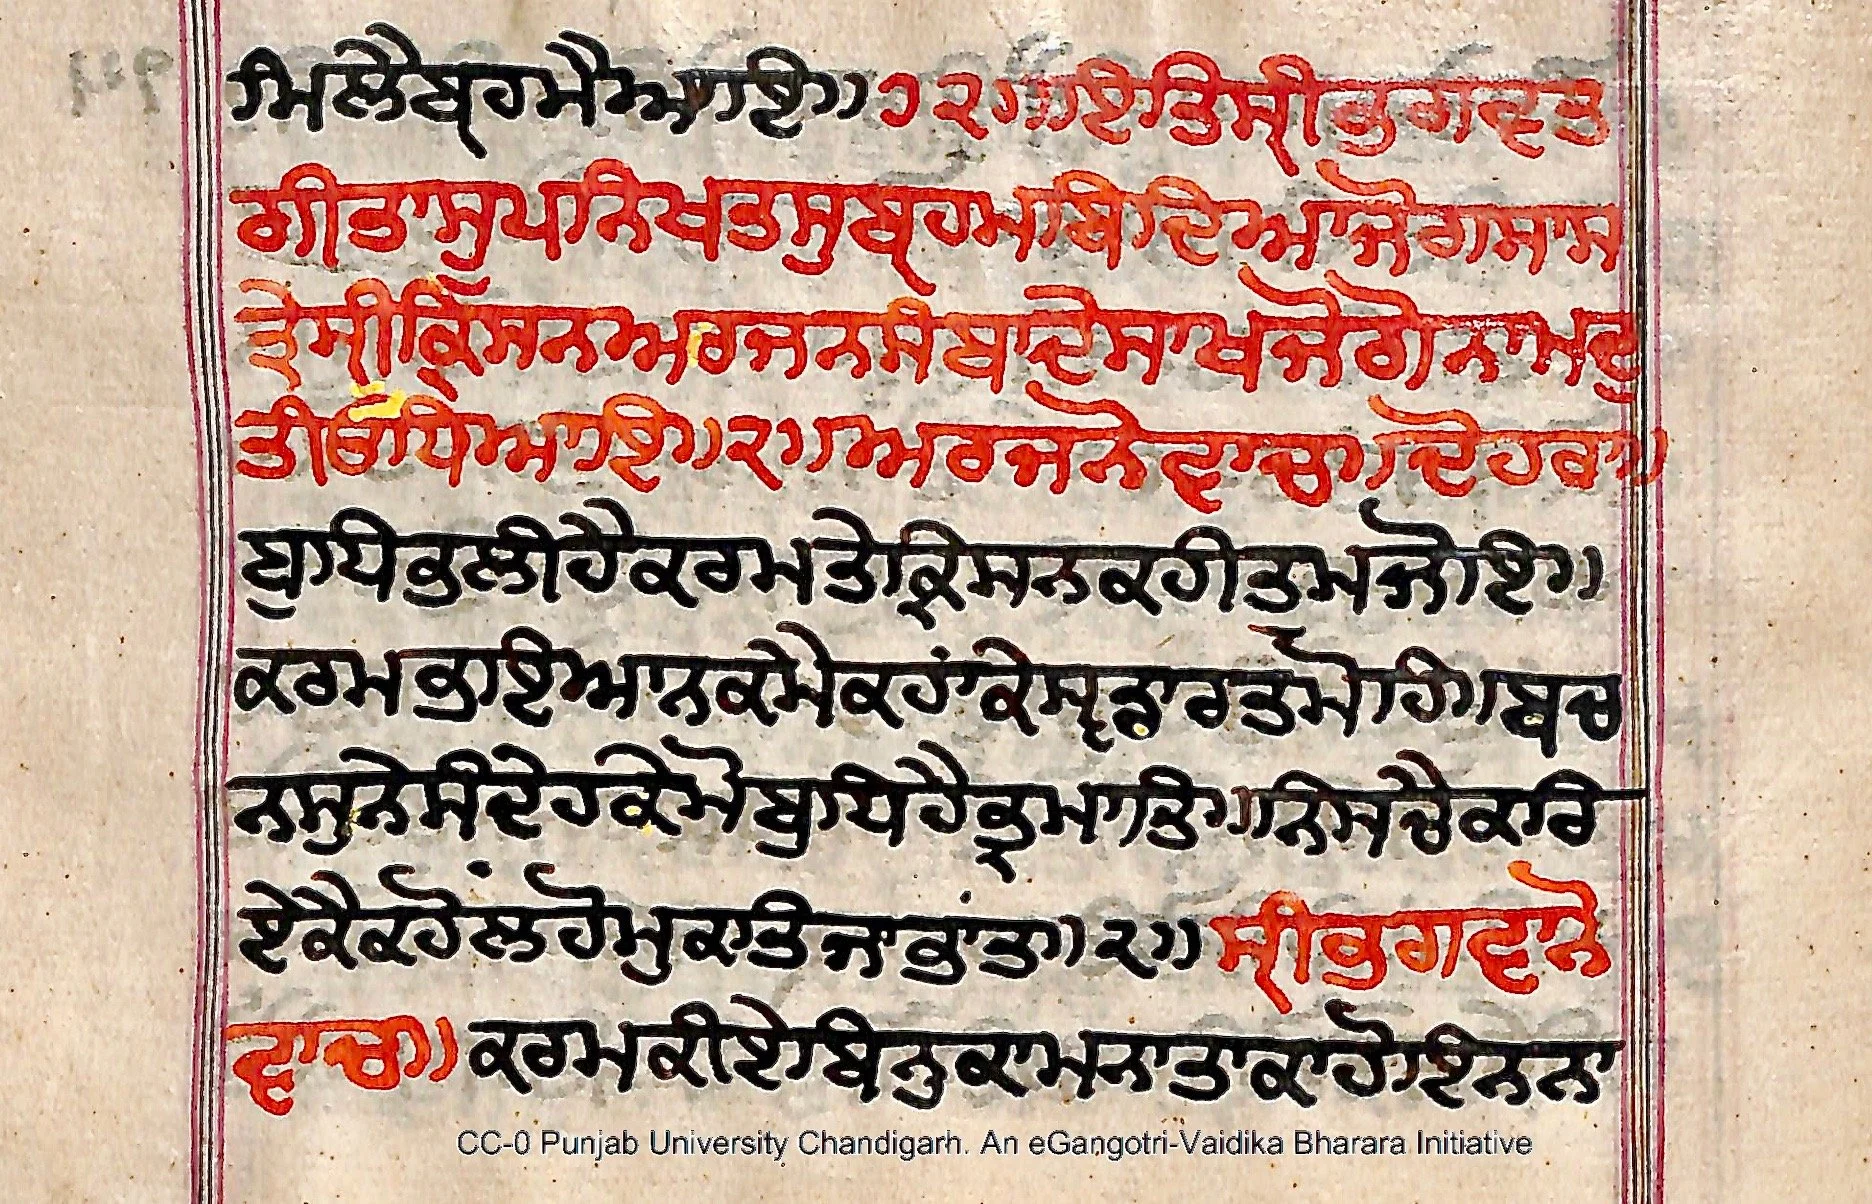 ਮਿਲੈਬ੍ਰਹਮੈਆਇ॥੭੨॥ਇਤਿਸ੍ਰੀਭਗਵਤ
ਗੀਤਾਸੁਪਨਿਖਤਸੁਬ੍ਰਹਮਬਿਦਿਆਜੋਗਸਾਸ
ਤ੍ਰੇਸ੍ਰੀਕ੍ਰਿਸਨਅਰਜਨਸੰਬਾਦੇਸਾਖਜੋਗੋਨਾਮਦੁ
ਤੀਓਧਿਆਇ॥੨॥ਅਰਜਨੋਵਾਚ॥ਦੋਹਰਾ॥
ਬੁਧਿਭਲੀਹੈਕਰਮਤੇਕ੍ਰਿਸਨਕਹੀਤੁਮਜੋਇ॥
ਕਰਮਭਇਆਨਕਮੈਕਹਾਂਕੇਸ੍ਵਡਾਰਤਮੋਹਿ॥ਬਚ
ਨਸੁਨੇਸੰਦੇਹਕੇਮੋਬੁਧਿਹੈਭ੍ਰਮਾਤਿ॥ਨਿਸਚੈਕਰਿ
ਏਕੈਕਹੋਂਲਹੋਮੁਕਤਿਜਾਭਾਂਤ॥੨॥ਸ੍ਰੀਭਗਵਾਨੋ
ਵਾਚ॥ਕਰਮਕੀਏਬਿਨੁਕਾਮਨਾਤਾਕਾਹੋਇਨਨਾ
CC-0 Punjab University Chandigarh. An eGangotri-Vaidika Bharara Initiative